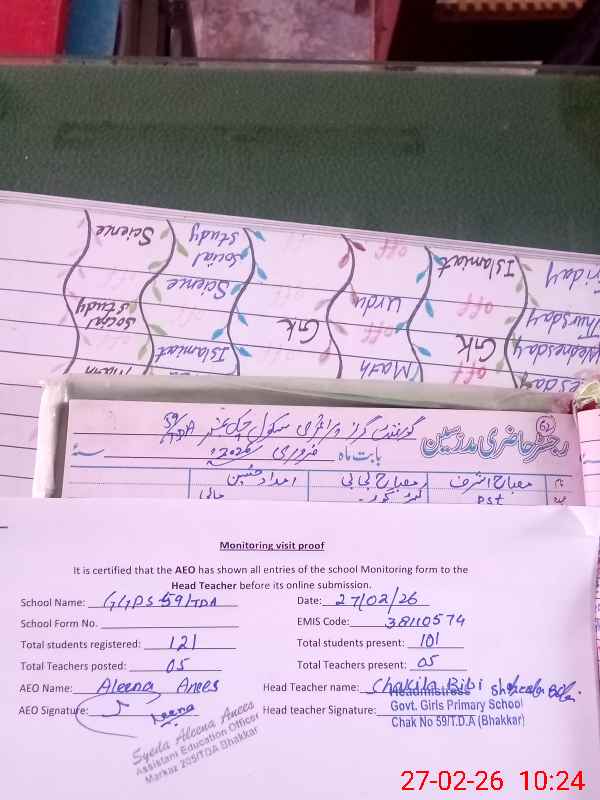 Friday Islamiat off Social study Science
Thursday off Urdu off Science
Wednesday Gk off Gk Social study
off Math Islamiat
62
رجسٹر حاضری مدرسین
گورنمنٹ گرلز پرائمری سکول چک نمبر 59/TDA
بابت ماہ فروری 2026ء
مصباح اشرف مصباح بی بی امداد حسین
Pst
Monitoring visit proof
It is certified that the AEO has shown all entries of the school Monitoring form to the
Head Teacher before its online submission.
School Name: GGPS 59/TDA Date: 27/02/26
School Form No. EMIS Code: 38110574
Total students registered: 121 Total students present: 101
Total Teachers posted: 05 Total Teachers present: 05
AEO Name: Aleena Anees Head Teacher name: Chakila Bibi
AEO Signature: Aleena Head teacher Signature:
Headmistress
Govt. Girls Primary School
Chak No 59/T.D.A (Bhakkar)
Syeda Aleena Anees
Assistant Education Officer
Markaz 205/TDA Bhakkar
27-02-26 10:24